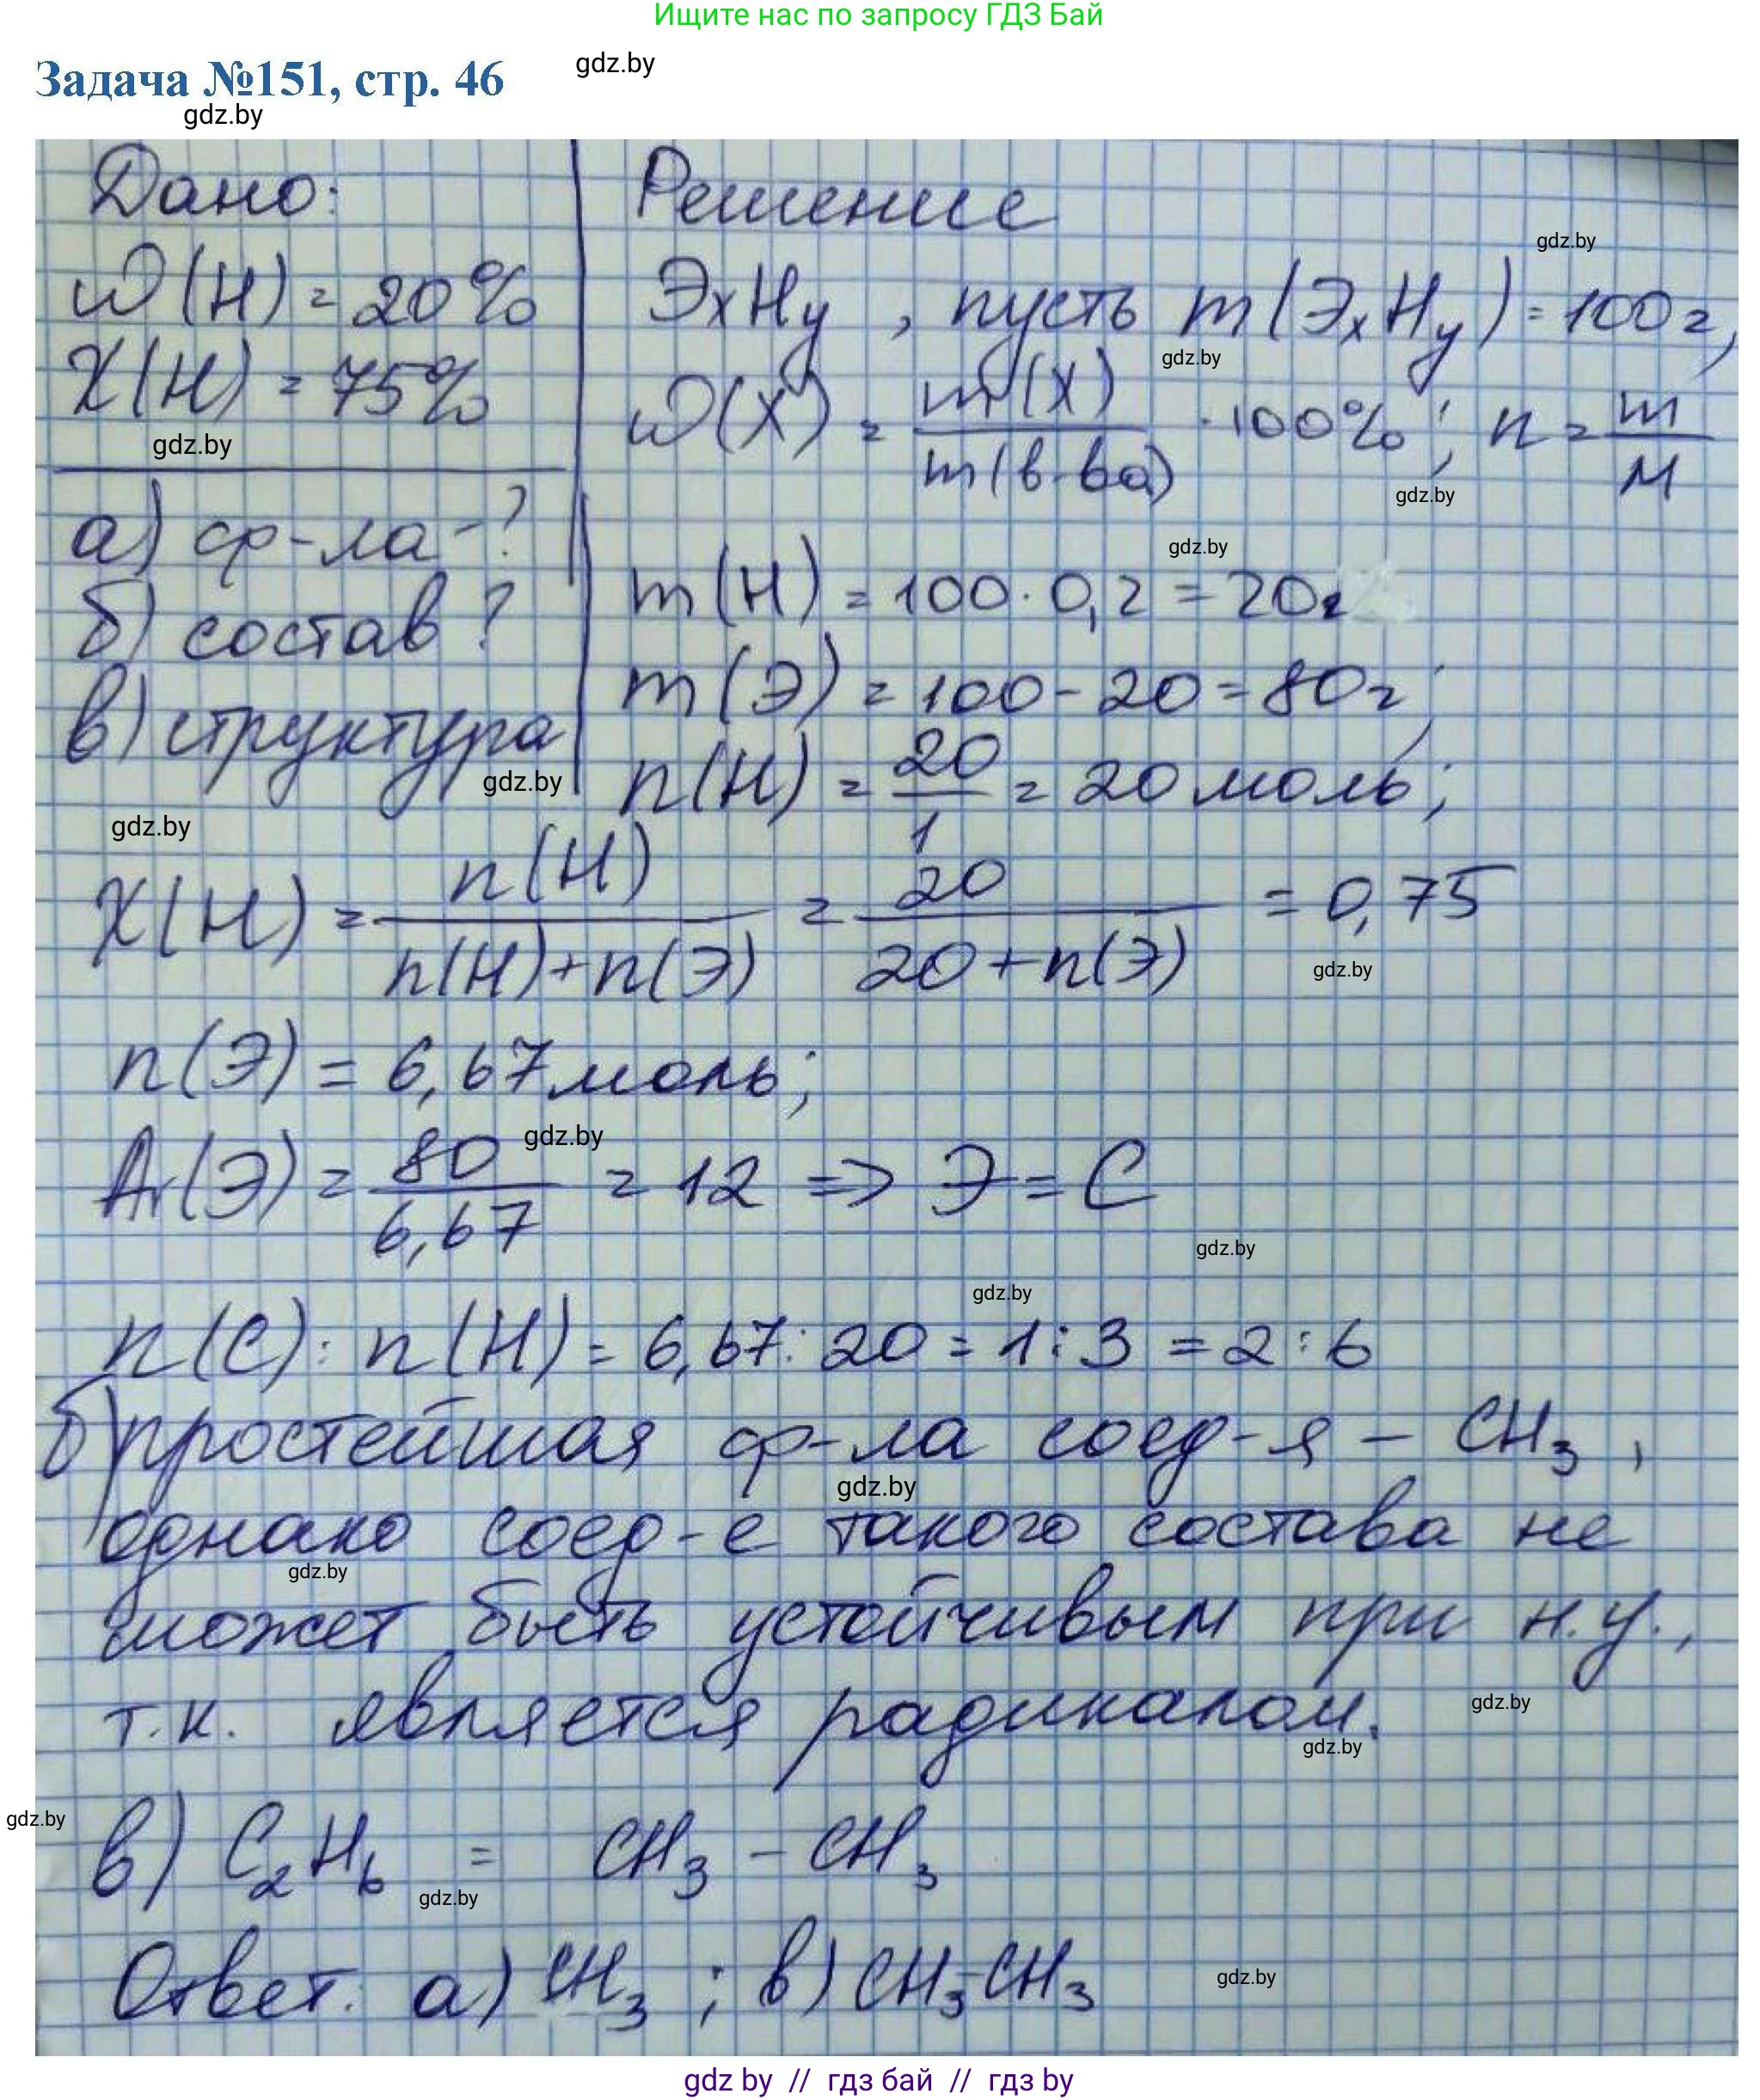 Ищите нас по запросу ГДЗ Бай
Задача №151, стр. 46
gdz.by
gdz.by
Дано:
ω(H) = 20%
χ(H) = 75%
gdz.by
а) ф-ла-?
б) состав?
в) структура
gdz.by
gdz.by
Решение
gdz.by
ЭxHy, пусть m(ЭxHy) = 100г,
gdz.by
ω(X) = m(X) / m(в-ва) · 100%; n = m / M
gdz.by
gdz.by
m(H) = 100 · 0,2 = 20г
m(Э) = 100 - 20 = 80г;
n(H) = 20 / 1 = 20 моль;
χ(H) = n(H) / n(H)+n(Э) = 20 / 20+n(Э) = 0,75
gdz.by
n(Э) = 6,67 моль;
gdz.by
Ar(Э) = 80 / 6,67 = 12 => Э = C
gdz.by
gdz.by
n(C) : n(H) = 6,67 : 20 = 1 : 3 = 2 : 6
б) простейшая ф-ла соед-я – CH₃,
gdz.by
однако соед-е такого состава не
gdz.by
может быть устойчивым при н.у.,
т.к. является радикалом.
gdz.by
gdz.by
gdz.by
в) C₂H₆ = CH₃ – CH₃
gdz.by
Ответ: а) CH₃; в) CH₃-CH₃
gdz.by
gdz by // гдз бай // gdz by